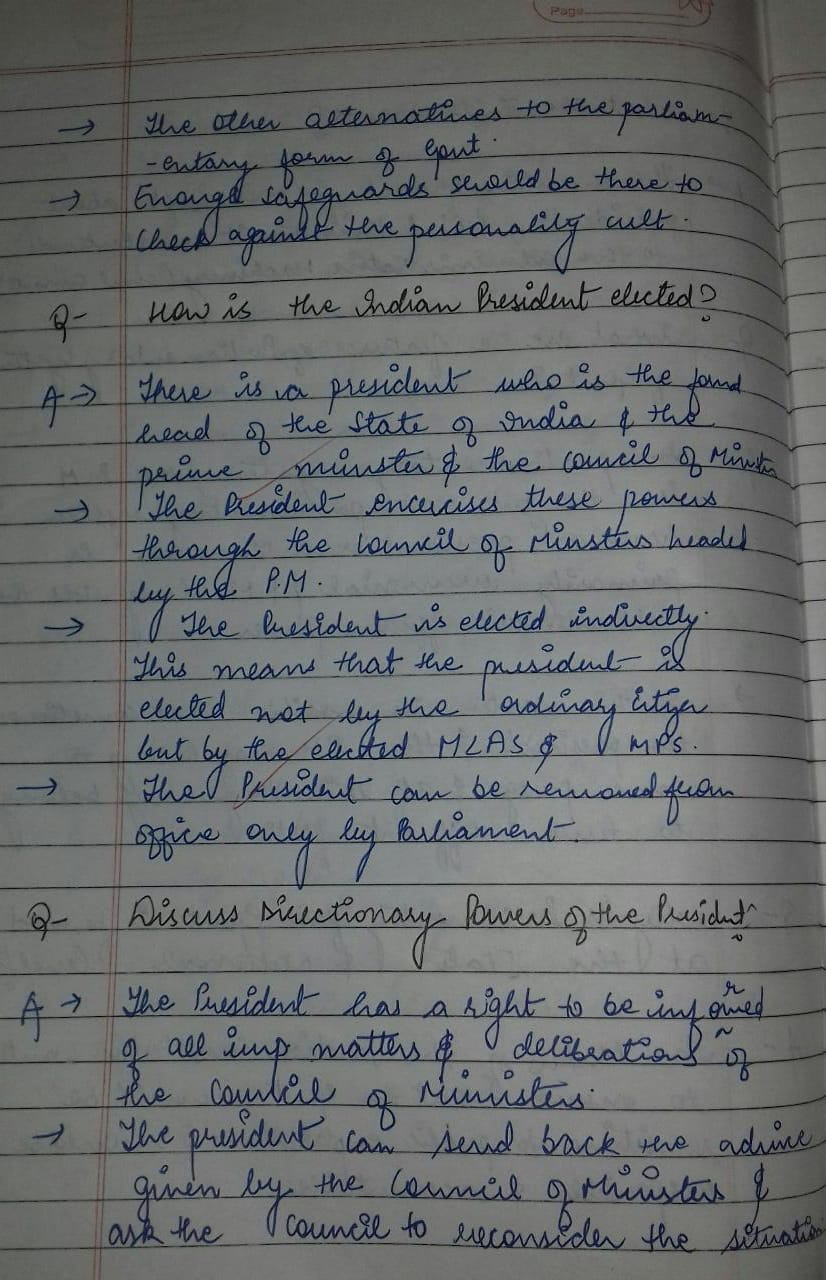 Page
→ The other alternatines to the parliam-
-entary form of Govt.
→ Enough safeguards sould be there to
Check against the personality cult.
Q- How is the Indian President elected?
A→ There is a president who is the
head of the State of India & the
prime minster & the council of
→ The President encercises these powers
through the Council of Minsters headed
by the P.M.
→ The President is elected indirectly.
This means that the president is
elected not by the ordinary
but by the elected MLAS & MPs.
→ The President can be removed from
office only by Parliament.
Q- Discuss Directionary Powers of the President
A→ The President has a right to be informed
of all imp matters & delibrations of
the Council of Ministers.
→ The president can send back the advice
given by the Council of Ministers &
ask the Council to reconsider the situation